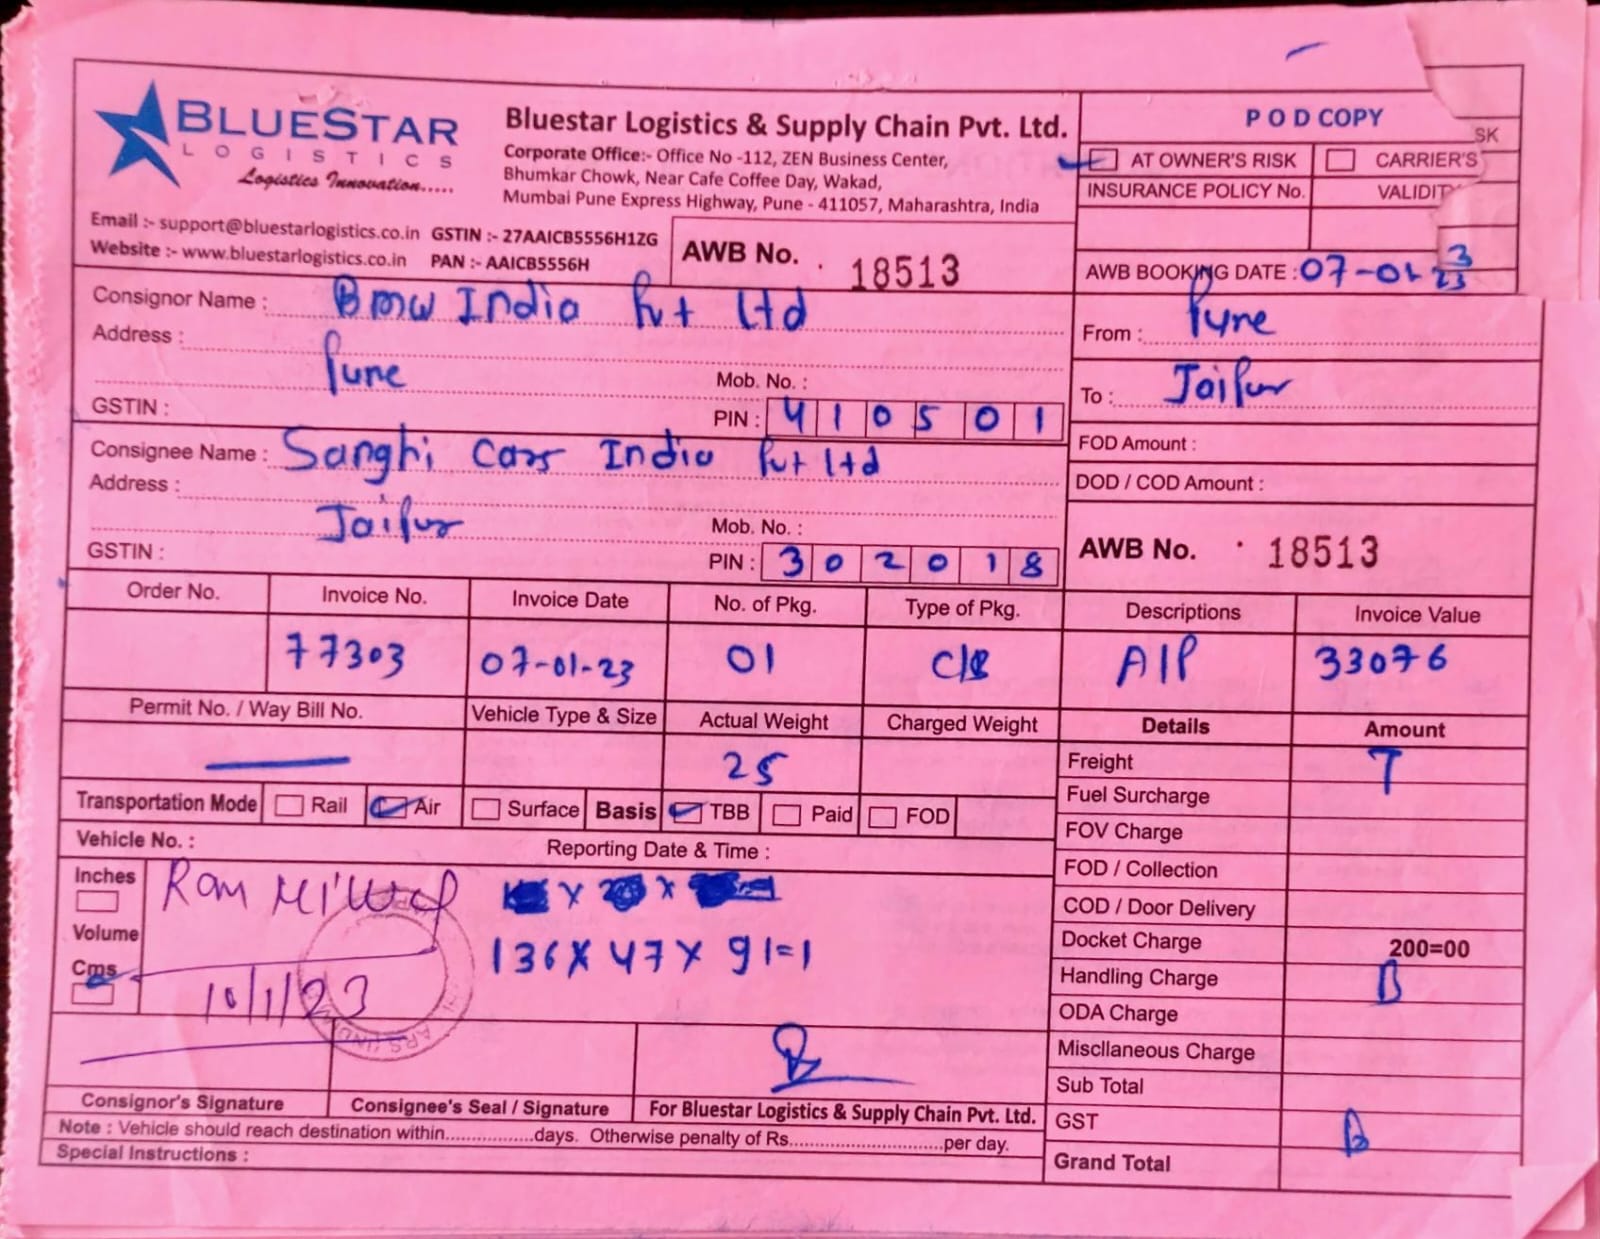 BLUESTAR
LOGISTICS
Logistics Innovation.....
Bluestar Logistics & Supply Chain Pvt. Ltd.
Corporate Office:- Office No -112, ZEN Business Center,
Bhumkar Chowk, Near Cafe Coffee Day, Wakad,
Mumbai Pune Express Highway, Pune - 411057, Maharashtra, India
Email :- support@bluestarlogistics.co.in GSTIN :- 27AAICB5556H1ZG
Website :- www.bluestarlogistics.co.in PAN :- AAICB5556H
AWB No. 18513
POD COPY
AT OWNER'S RISK CARRIER'S SK
INSURANCE POLICY No. VALIDITY
AWB BOOKING DATE : 07-01-23
Consignor Name : BMW India Pvt Ltd
Address :
Pune
Mob. No. :
GSTIN : PIN : 410501
From : Pune
To : Jaipur
FOD Amount :
DOD / COD Amount :
Consignee Name : Sanghi Cars India Pvt Ltd
Address :
Jaipur
Mob. No. :
GSTIN : PIN : 302018
AWB No. 18513
Order No. Invoice No. Invoice Date No. of Pkg. Type of Pkg. Descriptions Invoice Value
77303 07-01-23 01 C/B A/P 33076
Permit No. / Way Bill No. Vehicle Type & Size Actual Weight Charged Weight Details Amount
25
Transportation Mode Rail Air Surface Basis TBB Paid FOD
Vehicle No. : Reporting Date & Time :
Inches
Volume
Cms
Ram
10/1/23
136 X 47 X 91=1
Freight T
Fuel Surcharge
FOV Charge
FOD / Collection
COD / Door Delivery
Docket Charge 200=00
Handling Charge B
ODA Charge
Miscllaneous Charge
Sub Total
GST B
Grand Total
Consignor's Signature Consignee's Seal / Signature For Bluestar Logistics & Supply Chain Pvt. Ltd.
Note : Vehicle should reach destination within.................days. Otherwise penalty of Rs............................per day.
Special Instructions :